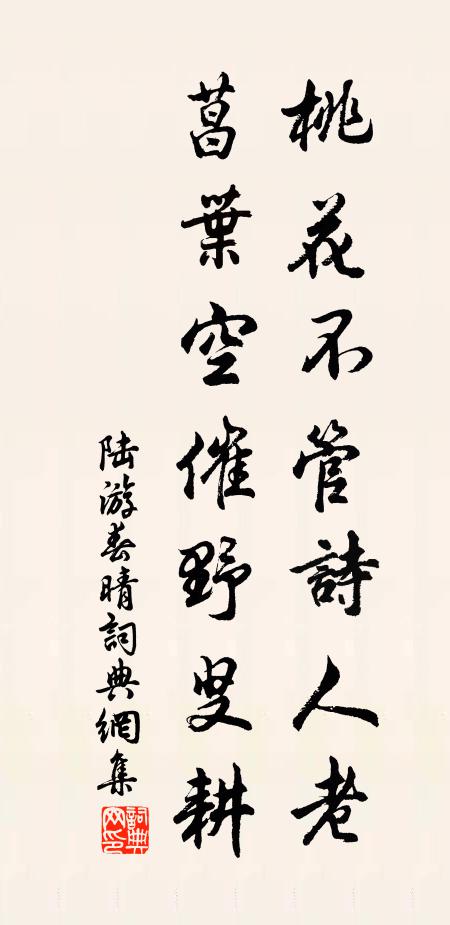 桃花不管詩人老
菖葉空催野叟耕
陆游春晴詞典網集
詞典网印